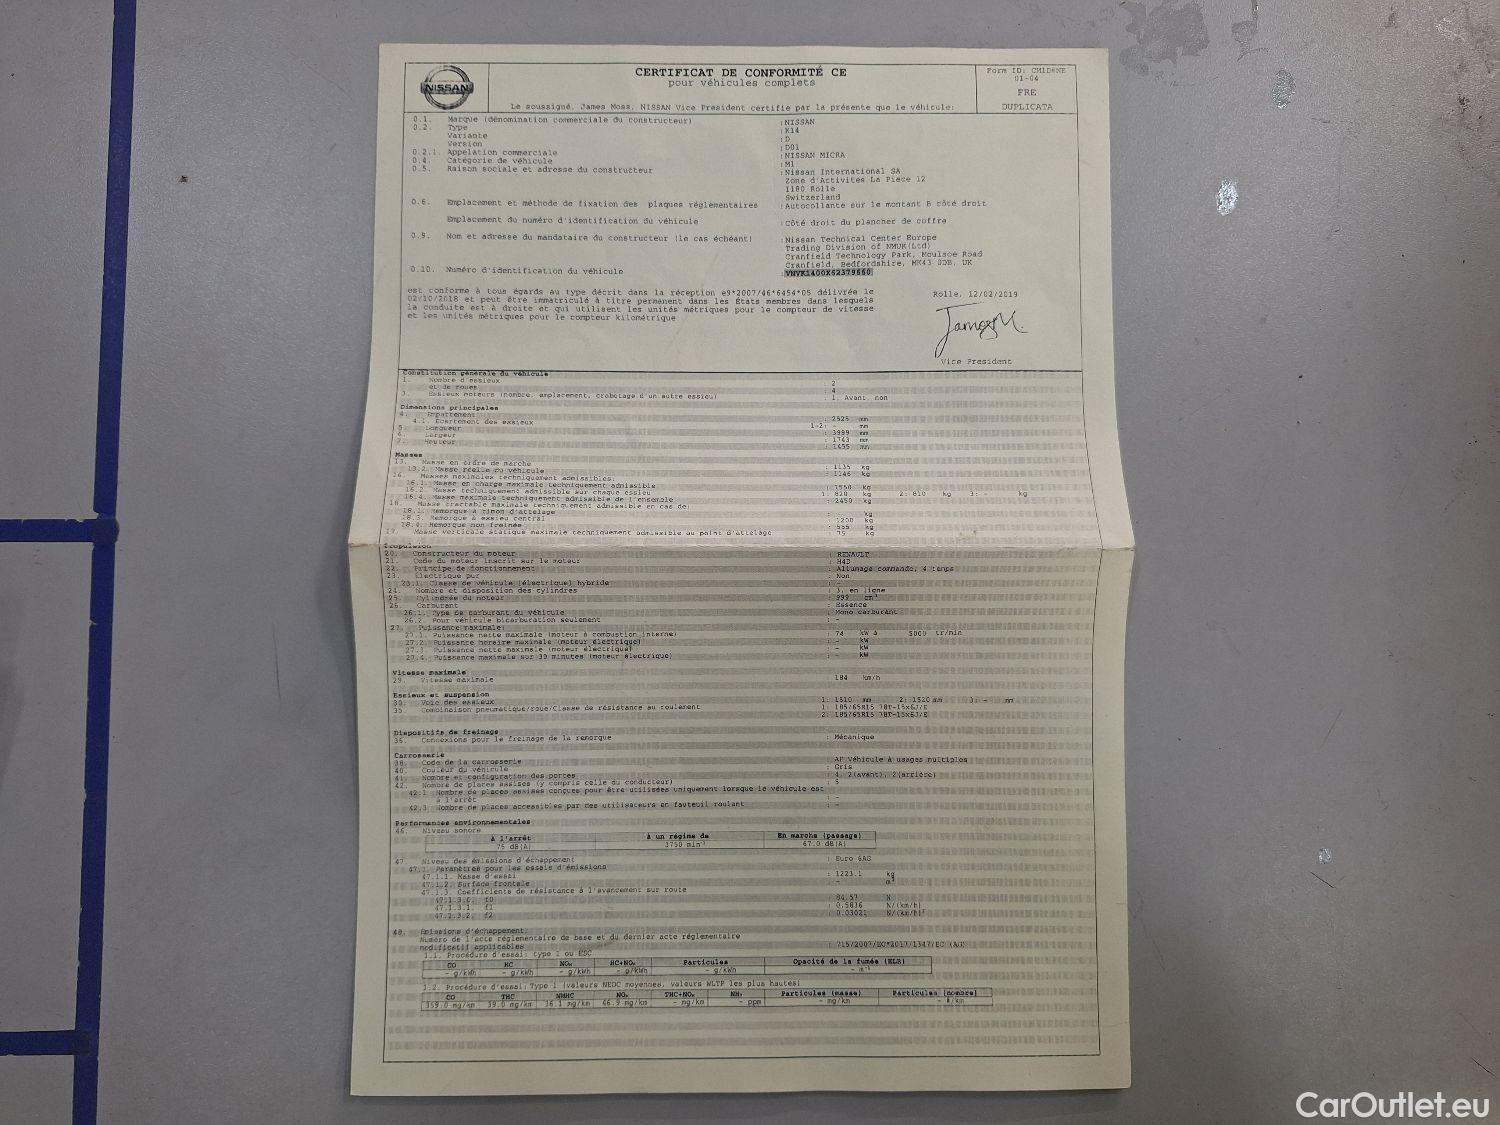 NISSAN
CERTIFICAT DE CONFORMITÉ CE
pour véhicules complets
Le soussigné, James Moss, NISSAN Vice President certifie par la présente que le véhicule:
01-04
FRE
DUPLICATA
0.1. Marque (dénomination commerciale du constructeur) :NISSAN
0.2. Type :K14
Variante :D
Version :D01
0.2.1. Appelation commerciale :NISSAN MICRA
0.4. Catégorie de véhicule :M1
0.5. Raison sociale et adresse du constructeur :Nissan International SA
Zone d'Activites La Piece 12
1180 Rolle
Switzerland
0.6. Emplacement et méthode de fixation des plaques réglementaires :Autocollante sur le montant B côté droit
Emplacement du numéro d'identification du véhicule :Côté droit du plancher de coffre
0.9. Nom et adresse du mandataire du constructeur (le cas échéant) :Nissan Technical Center Europe
Trading Division of NMUK(Ltd)
Cranfield Technology Park, Moulsoe Road
Cranfield, Bedfordshire, MK43 0DB, UK
0.10. Numéro d'identification du véhicule
est conforme à tous égards au type décrit dans la réception e9*2007/46*6454*05 délivrée le
02/10/2018 et peut être immatriculé à titre permanent dans les États membres dans lesquels
la conduite est à droite et qui utilisent les unités métriques pour le compteur de vitesse
et les unités métriques pour le compteur kilométrique
Rolle, 12/02/2019
James M.
Vice President
Constitution générale du véhicule
1. Nombre d'essieux : 2
et de roues : 4
3. Essieux moteurs (nombre, emplacement, crabotage d'un autre essieu) : 1, Avant, non
Dimensions principales
4. Empattement : 2525 mm
4.1. Écartement des essieux 1-2: - mm
5. Longueur : 3999 mm
6. Largeur : 1743 mm
7. Hauteur : 1455 mm
Masses
13. Masse en ordre de marche : 1135 kg
13.2. Masse réelle du véhicule : 1146 kg
16. Masses maximales techniquement admissibles:
16.1. Masse en charge maximale techniquement admissible : 1550 kg
16.2. Masse techniquement admissible sur chaque essieu 1: 820 kg 2: 810 kg 3: - kg
16.4. Masse maximale techniquement admissible de l'ensemble : 2450 kg
18. Masse tractable maximale techniquement admissible en cas de:
18.1. Remorque à timon d'attelage : - kg
18.3. Remorque à essieu central : 1200 kg
18.4. Remorque non freinée : 565 kg
19. Masse verticale statique maximale techniquement admissible au point d'attelage : 75 kg
Propulsion
20. Constructeur du moteur : RENAULT
21. Code du moteur inscrit sur le moteur : H4D
22. Principe de fonctionnement : Allumage commande, 4 temps
23. Électrique pur : Non
23.1. Classe de véhicule [électrique] hybride : -
24. Nombre et disposition des cylindres : 3, en ligne
25. Cylindrée du moteur : 999 cm³
26. Carburant : Essence
26.1. Type de carburant du véhicule : Mono carburant
26.2. Pour véhicule bicarburation seulement : -
27. Puissance maximale:
27.1. Puissance nette maximale (moteur à combustion interne) : 74 kW à 5000 tr/min
27.2. Puissance horaire maximale (moteur électrique) : - kW
27.3. Puissance nette maximale (moteur électrique) : - kW
27.4. Puissance maximale sur 30 minutes (moteur électrique) : - kW
Vitesse maximale
29. Vitesse maximale : 184 km/h
Essieux et suspension
30. Voie des essieux 1: 1510 mm 2: 1520 mm 3: - mm
35. Combinaison pneumatique/roue/Classe de résistance au roulement 1: 185/65R15
2: 185/65R15
Dispositifs de freinage
36. Connexions pour le freinage de la remorque : Mécanique
Carrosserie
38. Code de la carrosserie : AF Véhicule à usages multiples
40. Couleur du véhicule : Gris
41. Nombre et configuration des portes : 4, 2(avant), 2(arrière)
42. Nombre de places assises (y compris celle du conducteur) : 5
42.1 Nombre de places assises conçues pour être utilisées uniquement lorsque le véhicule est
à l'arrêt : -
42.3. Nombre de places accessibles par des utilisateurs en fauteuil roulant : -
Performances environnementales
46. Niveau sonore
à l'arrêt à un régime de En marche (passage)
75 dB(A) 3750 min⁻¹ 67.0 dB(A)
47. Niveau des émissions d'échappement : Euro 6AG
47.1. Paramètres pour les essais d'émissions
47.1.1. Masse d'essai : 1223.1 kg
47.1.2. Surface frontale : - m²
47.1.3. Coefficients de résistance à l'avancement sur route
47.1.3.0. f0 N
47.1.3.1. f1 : 0.5836 N/(km/h)
47.1.3.2. f2 : 0.03021 N/(km/h)²
48. Émissions d'échappement:
Numéro de l'acte réglementaire de base et du dernier acte réglementaire
modificatif applicables : 715/2007/EC*2017/1347/EC (AG)
1.1. Procédure d'essai: type 1 ou ESC
CO HC NOx HC+NOx Particules Opacité de la fumée (ELR)
- g/kWh - g/kWh - g/kWh - g/kWh - g/kWh - m⁻¹
1.2. Procédure d'essai: Type 1 (valeurs NEDC moyennes, valeurs WLTP les plus hautes)
CO THC NMHC NOx THC+NOx NH₃ Particules (masse) Particules (nombre)
359.0 mg/km 39.0 mg/km 36.1 mg/km 46.9 mg/km - mg/km - ppm - mg/km - #/km
CarOutlet.eu